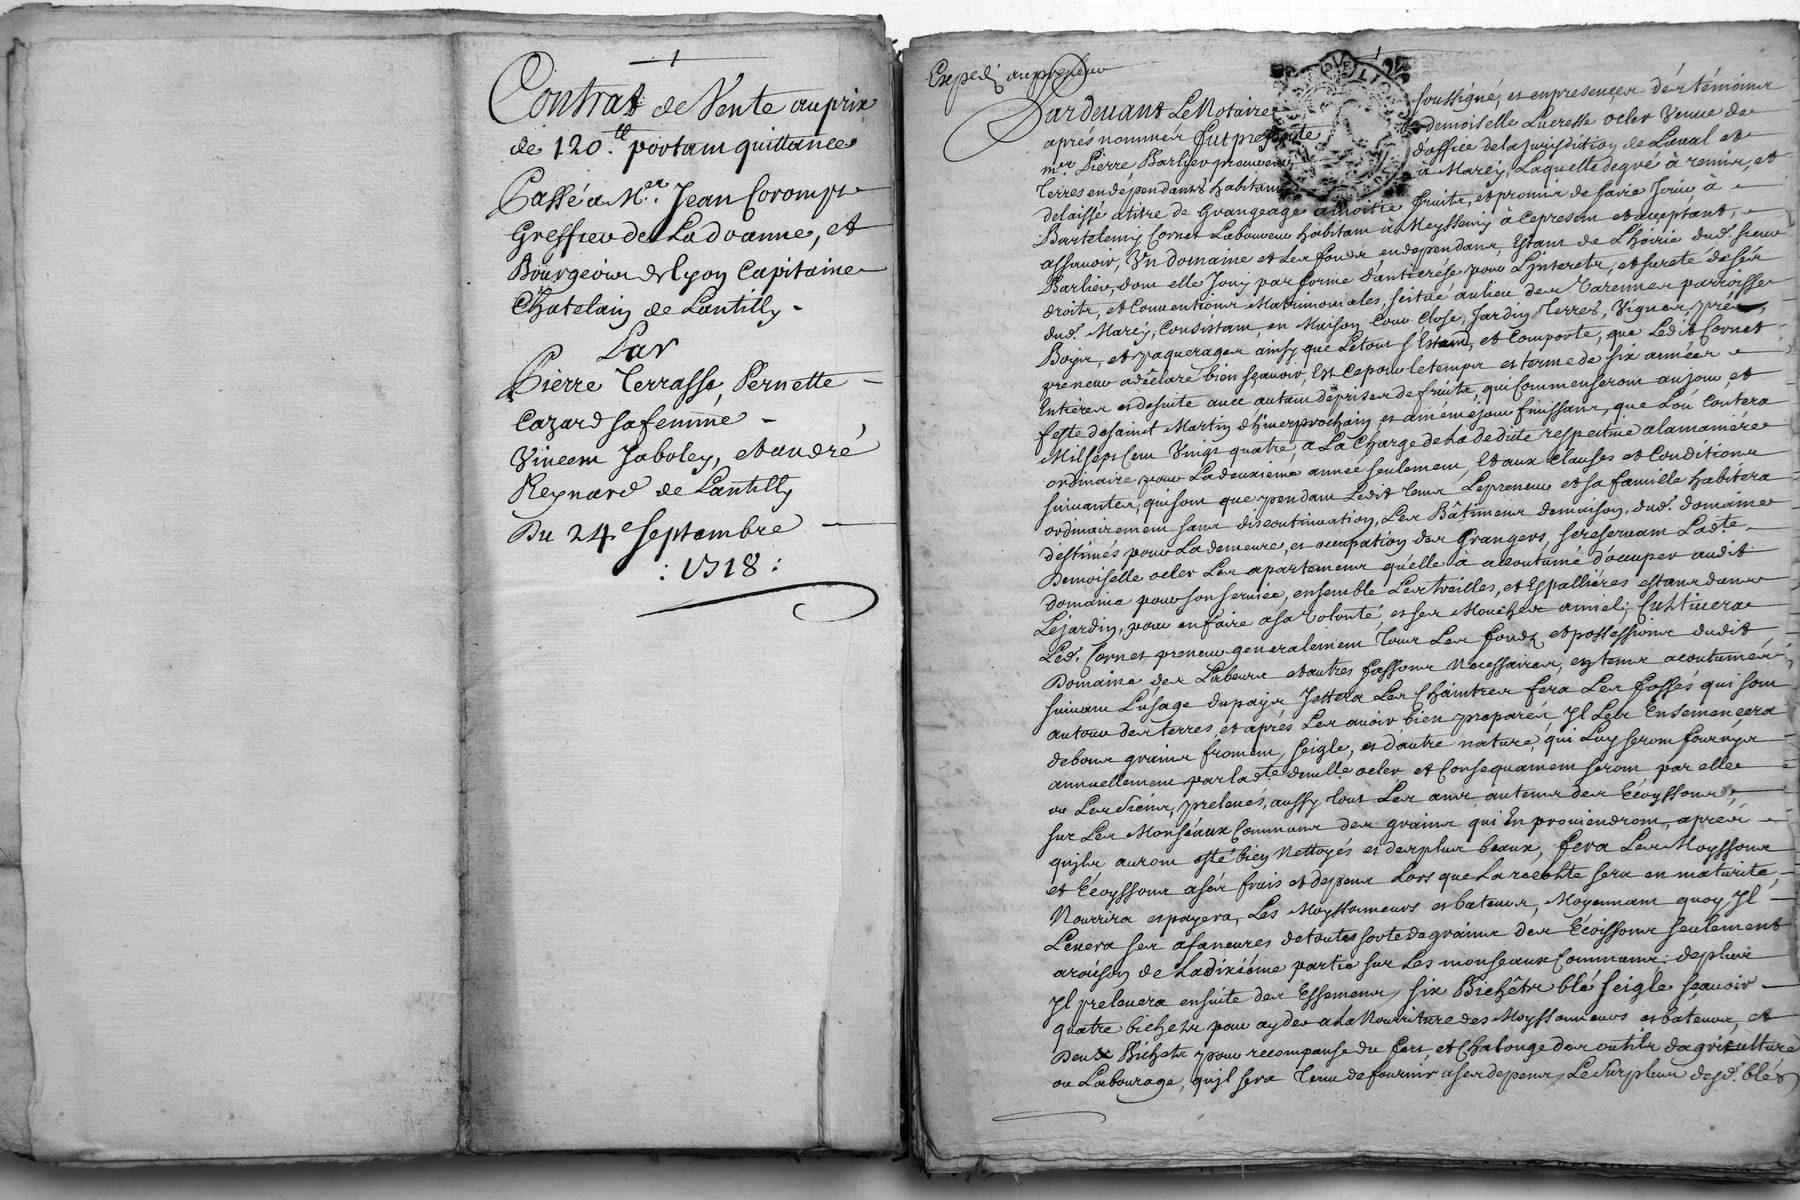 Contrat de Vente au prix
de 120.tt portant quittance
Passé a Mr. Jean Corompt
Greffier de Ladoanne, et
Bourgeois de lyon Capitaine
Chatelain de Lantilly.
Par
Pierre Terrasse, Pernette
Cazard sa femme
Vincem Jaboley, et andré
Reynard de Lantilly
Du 24e Septembre
: 1718 :
Exped. au preneur
Pardevant Le Notaire soussigné, et en presences des témoins
aprés nommés fut presente demoiselle Lucresse ocler Veuve de
mr. Pierre Barlier procureur d'office de la jurisdiction de Laval et
Terres en dépendants habitante a Marcy, Laquelle de gré à remis, et
delaissé a titre de Grangeage a moitie fruits, et promis de faire Jouir à
Bartelemy Cornet Laboureur habitant à Meyssemy à ce present et acceptant,
assavoir, Un domaine et Les fonds en dependans, Estant de L'hoirie dud. sieur
Barlier, dont elle Jouy par forme d'anticrése pour L'jnterets, et sureté de ses
droits, et Conventions Matrimoniales, scitué au lieu des Varennes parroisse
dud. Marcy, Consistant, en Maison, Cour Close, Jardin, Terres, Vignes, prés,
Boys, et paquerages ainsy que Le tout s'Estant, et Comporte, que Ledit Cornet
preneur a déclaré bien sçauoir, Est Ce pour le temps et terme de six années
Entieres et de suite avec autant de prises de fruits, qui Commenseront au jour, et
feste de saint Martin d'hiver prochain, et a méme jour finissant, que L'on Contera
Mil sept Cent Vingt quatre, a La Charge de La dedite respective a la maniére
ordinaire pour La deuxieme année seulement, Et aux Clauses et Conditions
suivantes, qui sont que pendant Ledit tems Le preneur et sa famille habitera
ordinairement sans discontinuation, Les Bâtimens de maison, dud. domaine
destinés pour La demeure, et occupation des Grangers, se reservant Ladte
Demoiselle ocler Les apartemens qu'elle à acoutumé d'occuper audit
domaine pour son service, ensemble Les treilles, et Espalliéres estans dans
Le jardin, pour en faire a sa Volonté, et ses Mouches a miel; Cultivera
Led. Cornet preneur generalement tous Les fonds et possessions dudit
Domaine des Labeurs et autres fassons Necessaires, en tems acoutumés
suivant L'usage du pays, Jettera Les Chaintres fera Les fossés qui sont
autour des terres, et aprés Les avoir bien preparés, Jl Les Ensemencera
de bons grains froment, seigle, et d'autre nature, qui Luy seront fournys
annuellement par lad.te dmlle ocler et Consequament seront par elle
ou Les siens, prelevés, aussy tous Les ans, au tems des Ecoyssons,
sur Les Monséaux Communs des grains qui En proviendront, aprés
qu'jls auront esté bien Nettoyés et des plus beaux, fera Les Moyssons
et Ecoyssons a ses frais et depens Lors que La recolte sera en maturité,
Nourrira et payera, Les Moyssonneurs et bateurs, Moyennant quoy Jl
Levera ses afaneures de toutes sorte de grains des Ecoissons seulement
a raison de La dixiéme partie sur Les monseaux Communs: de plus
Jl prelevera ensuite des Essemens, six Bichêts blé seigle scavoir
quatre bichets pour ayder a La Nourriture des Moyssonneurs et bateurs, et
Deux Bichets pour recompanse du fert, et Chalonge des outils d'agriculture
ou Labourage, qu'jl sera tenu de fournir a ses depens, Le surplus desd. bleds